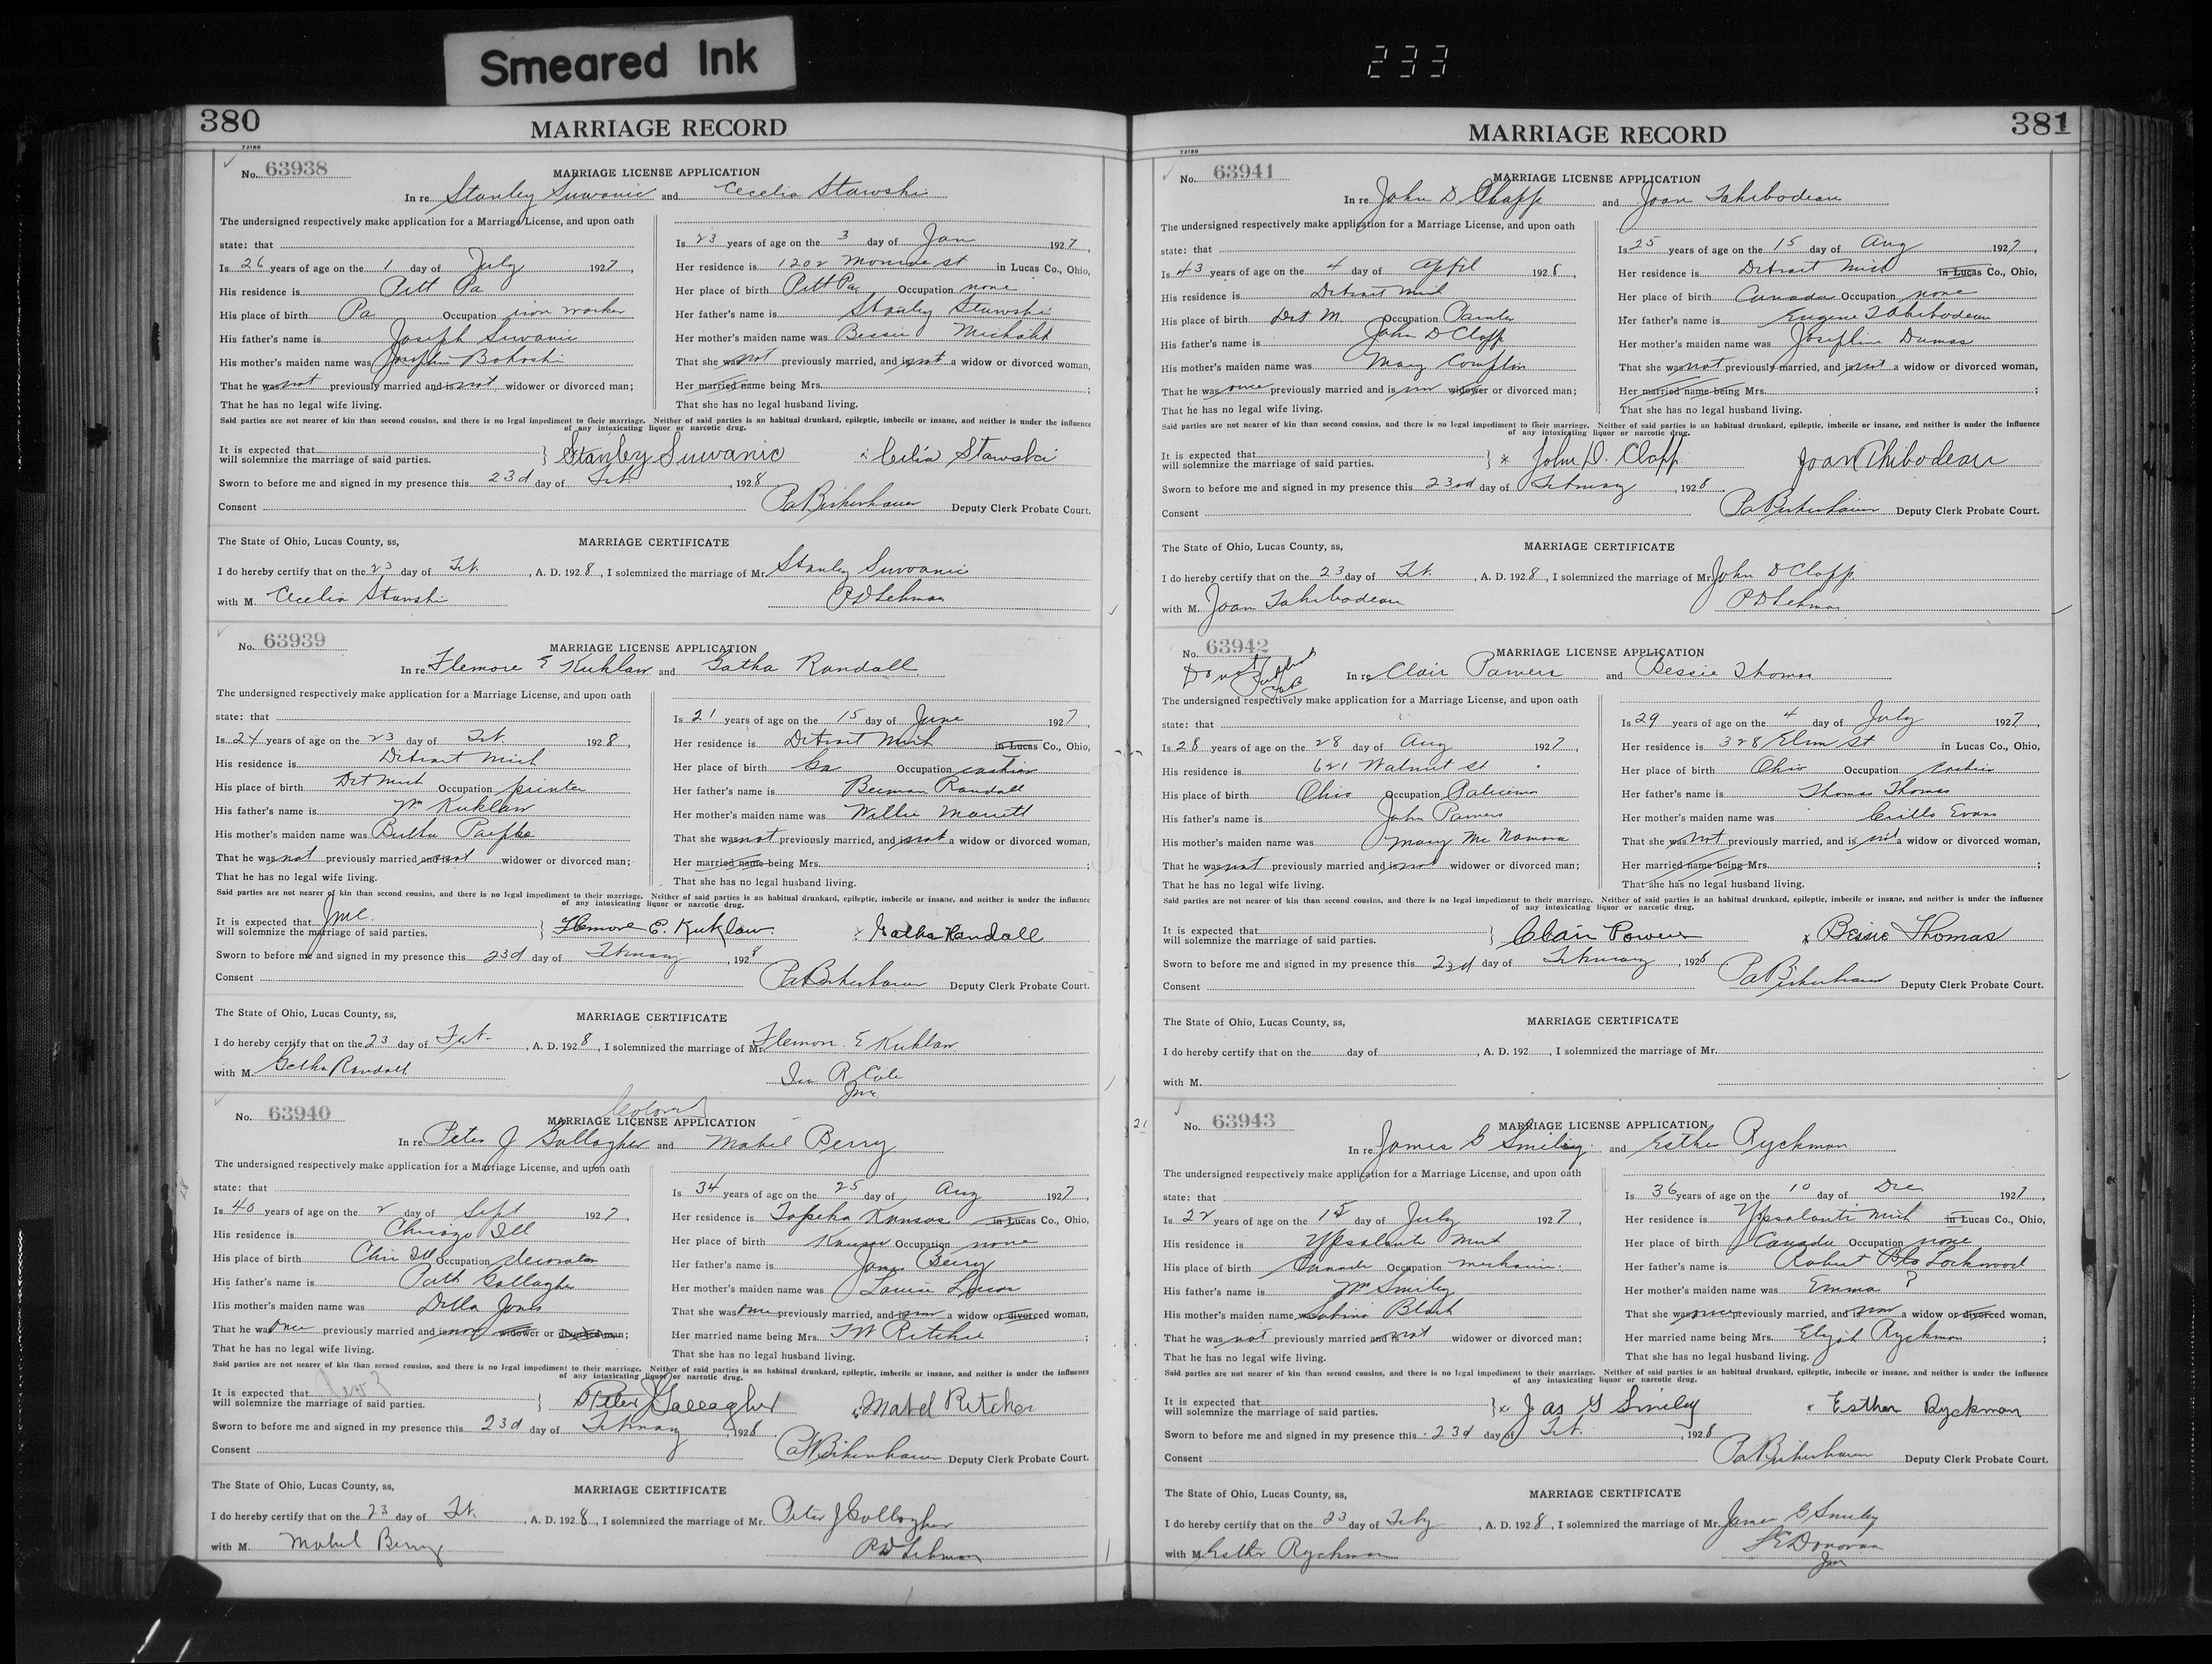 Smeared Ink
233
380
MARRIAGE RECORD
73188
No. 63938
MARRIAGE LICENSE APPLICATION
In re Stanley Suwanic and Cecelia Stawski
The undersigned respectively make application for a Marriage License, and upon oath
state: that
Is 26 years of age on the 1 day of July 1927,
His residence is Pitt Pa
His place of birth Pa Occupation iron worker
His father's name is Joseph Suwanic
His mother's maiden name was Josephine
That he was not previously married and is not widower or divorced man;
That he has no legal wife living.
Is 23 years of age on the 3 day of Jan 1927,
Her residence is 1202 Monroe st in Lucas Co., Ohio,
Her place of birth Pitt Pa Occupation none
Her father's name is Stanley Stawski
Her mother's maiden name was Bessie
That she was not previously married, and is not a widow or divorced woman,
Her married name being Mrs. ;
That she has no legal husband living.
Said parties are not nearer of kin than second cousins, and there is no legal impediment to their marriage. Neither of said parties is an habitual drunkard, epileptic, imbecile or insane, and neither is under the influence
of any intoxicating liquor or narcotic drug.
It is expected that
will solemnize the marriage of said parties. } Stanley Suwanic x Celia Stawski
Sworn to before me and signed in my presence this 23d day of Feb. , 1928
Consent PaBirkenhauer Deputy Clerk Probate Court.
The State of Ohio, Lucas County, ss, MARRIAGE CERTIFICATE
I do hereby certify that on the 23 day of Feb. , A. D. 1928, I solemnized the marriage of Mr. Stanley Suwanic
with M. Cecelia Stawski P D Lehman
No. 63939
MARRIAGE LICENSE APPLICATION
In re Flemore E Kuklaw and Gatha Randall
The undersigned respectively make application for a Marriage License, and upon oath
state: that
Is 24 years of age on the 23 day of Feb 1928,
His residence is Detroit Mich
His place of birth Det Mich Occupation printer
His father's name is Wm Kuklaw
His mother's maiden name was Paefke
That he was not previously married and is not widower or divorced man;
That he has no legal wife living.
Is 21 years of age on the 15 day of June 1927,
Her residence is Detroit Mich in Lucas Co., Ohio,
Her place of birth Ga Occupation cashier
Her father's name is Beeman Randall
Her mother's maiden name was Willie
That she was not previously married, and is not a widow or divorced woman,
Her married name being Mrs. ;
That she has no legal husband living.
Said parties are not nearer of kin than second cousins, and there is no legal impediment to their marriage. Neither of said parties is an habitual drunkard, epileptic, imbecile or insane, and neither is under the influence
of any intoxicating liquor or narcotic drug.
It is expected that
will solemnize the marriage of said parties. } Flemore E. Kuklaw x Gatha Randall
Sworn to before me and signed in my presence this 23d day of February , 1928
Consent PaBirkenhauer Deputy Clerk Probate Court.
The State of Ohio, Lucas County, ss, MARRIAGE CERTIFICATE
I do hereby certify that on the 23 day of Feb. , A. D. 1928, I solemnized the marriage of Mr. Flemore E Kuklaw
with M. Gatha Randall Ira R Cole
No. 63940
Colored
MARRIAGE LICENSE APPLICATION
In re Peter J Gallagher and Mabel Berry
The undersigned respectively make application for a Marriage License, and upon oath
state: that
Is 40 years of age on the 2 day of Sept 1927,
His residence is Chicago Ill
His place of birth Chic Ill Occupation decorator
His father's name is Path Gallagher
His mother's maiden name was Della Jones
That he was once previously married and is now widower or divorced man;
That he has no legal wife living.
Is 34 years of age on the 25 day of Aug 1927,
Her residence is Topeka Kansas in Lucas Co., Ohio,
Her place of birth Kansas Occupation none
Her father's name is James Berry
Her mother's maiden name was Louise
That she was once previously married, and is now a widow or divorced woman,
Her married name being Mrs. Ritchie ;
That she has no legal husband living.
Said parties are not nearer of kin than second cousins, and there is no legal impediment to their marriage. Neither of said parties is an habitual drunkard, epileptic, imbecile or insane, and neither is under the influence
of any intoxicating liquor or narcotic drug.
It is expected that
will solemnize the marriage of said parties. } Peter J Gallagher x Mabel Ritcher
Sworn to before me and signed in my presence this 23d day of February , 1928
Consent PaBirkenhauer Deputy Clerk Probate Court.
The State of Ohio, Lucas County, ss, MARRIAGE CERTIFICATE
I do hereby certify that on the 23 day of Feb. , A. D. 1928, I solemnized the marriage of Mr. Peter J Gallagher
with M. Mabel Berry P D Lehman
381
MARRIAGE RECORD
73188
No. 63941
MARRIAGE LICENSE APPLICATION
In re John D Clapp and Joan Tahibodeau
The undersigned respectively make application for a Marriage License, and upon oath
state: that
Is 43 years of age on the 4 day of April 1928,
His residence is Detroit Mich
His place of birth Det M. Occupation Painter
His father's name is John D Clapp
His mother's maiden name was Mary
That he was once previously married and is now widower or divorced man;
That he has no legal wife living.
Is 25 years of age on the 15 day of Aug 1927,
Her residence is Detroit Mich in Lucas Co., Ohio,
Her place of birth Canada Occupation none
Her father's name is Eugene Tahibodeau
Her mother's maiden name was Josephine Dumas
That she was not previously married, and is not a widow or divorced woman,
Her married name being Mrs. ;
That she has no legal husband living.
Said parties are not nearer of kin than second cousins, and there is no legal impediment to their marriage. Neither of said parties is an habitual drunkard, epileptic, imbecile or insane, and neither is under the influence
of any intoxicating liquor or narcotic drug.
It is expected that
will solemnize the marriage of said parties. } x John D. Clapp Joan Thibodeau
Sworn to before me and signed in my presence this 23rd day of February , 1928
Consent PaBirkenhauer Deputy Clerk Probate Court.
The State of Ohio, Lucas County, ss, MARRIAGE CERTIFICATE
I do hereby certify that on the 23 day of Feb. , A. D. 1928, I solemnized the marriage of Mr. John D Clapp
with M. Joan Tahibodeau P D Lehman
No. 63942
Dont Publish
MARRIAGE LICENSE APPLICATION
In re Clair Powers and Bessie Thomas
The undersigned respectively make application for a Marriage License, and upon oath
state: that
Is 28 years of age on the 28 day of Aug 1927,
His residence is 621 Walnut st
His place of birth Ohio Occupation Policeman
His father's name is John Powers
His mother's maiden name was Mary Mc Namara
That he was not previously married and is not widower or divorced man;
That he has no legal wife living.
Is 29 years of age on the 4 day of July 1927,
Her residence is 328 Elm St in Lucas Co., Ohio,
Her place of birth Ohio Occupation cashier
Her father's name is Thomas Thomas
Her mother's maiden name was Evans
That she was not previously married, and is not a widow or divorced woman,
Her married name being Mrs. ;
That she has no legal husband living.
Said parties are not nearer of kin than second cousins, and there is no legal impediment to their marriage. Neither of said parties is an habitual drunkard, epileptic, imbecile or insane, and neither is under the influence
of any intoxicating liquor or narcotic drug.
It is expected that
will solemnize the marriage of said parties. } Clair Powers x Bessie Thomas
Sworn to before me and signed in my presence this 23d day of February , 1928
Consent PaBirkenhauer Deputy Clerk Probate Court.
The State of Ohio, Lucas County, ss, MARRIAGE CERTIFICATE
I do hereby certify that on the day of , A. D. 192 , I solemnized the marriage of Mr.
with M.
21
No. 63943
MARRIAGE LICENSE APPLICATION
In re James G Smiley and Esther Ryckman
The undersigned respectively make application for a Marriage License, and upon oath
state: that
Is 22 years of age on the 15 day of July 1927,
His residence is Ypsalanti Mich
His place of birth Canada Occupation mechanic
His father's name is Wm Smiley
His mother's maiden name was Black
That he was not previously married and is not widower or divorced man;
That he has no legal wife living.
Is 36 years of age on the 10 day of Dec 1927,
Her residence is Ypsalanti Mich in Lucas Co., Ohio,
Her place of birth Canada Occupation none
Her father's name is Robert Lockwood
Her mother's maiden name was Emma ?
That she was once previously married, and is now a widow or divorced woman,
Her married name being Mrs. Elijah Ryckman ;
That she has no legal husband living.
Said parties are not nearer of kin than second cousins, and there is no legal impediment to their marriage. Neither of said parties is an habitual drunkard, epileptic, imbecile or insane, and neither is under the influence
of any intoxicating liquor or narcotic drug.
It is expected that
will solemnize the marriage of said parties. } x Jas G Smiley x Esther Ryckman
Sworn to before me and signed in my presence this 23d day of Feb. , 1928
Consent PaBirkenhauer Deputy Clerk Probate Court.
The State of Ohio, Lucas County, ss, MARRIAGE CERTIFICATE
I do hereby certify that on the 23 day of Feby , A. D. 1928, I solemnized the marriage of Mr. James G Smiley
with M. Esther Ryckman Donovan